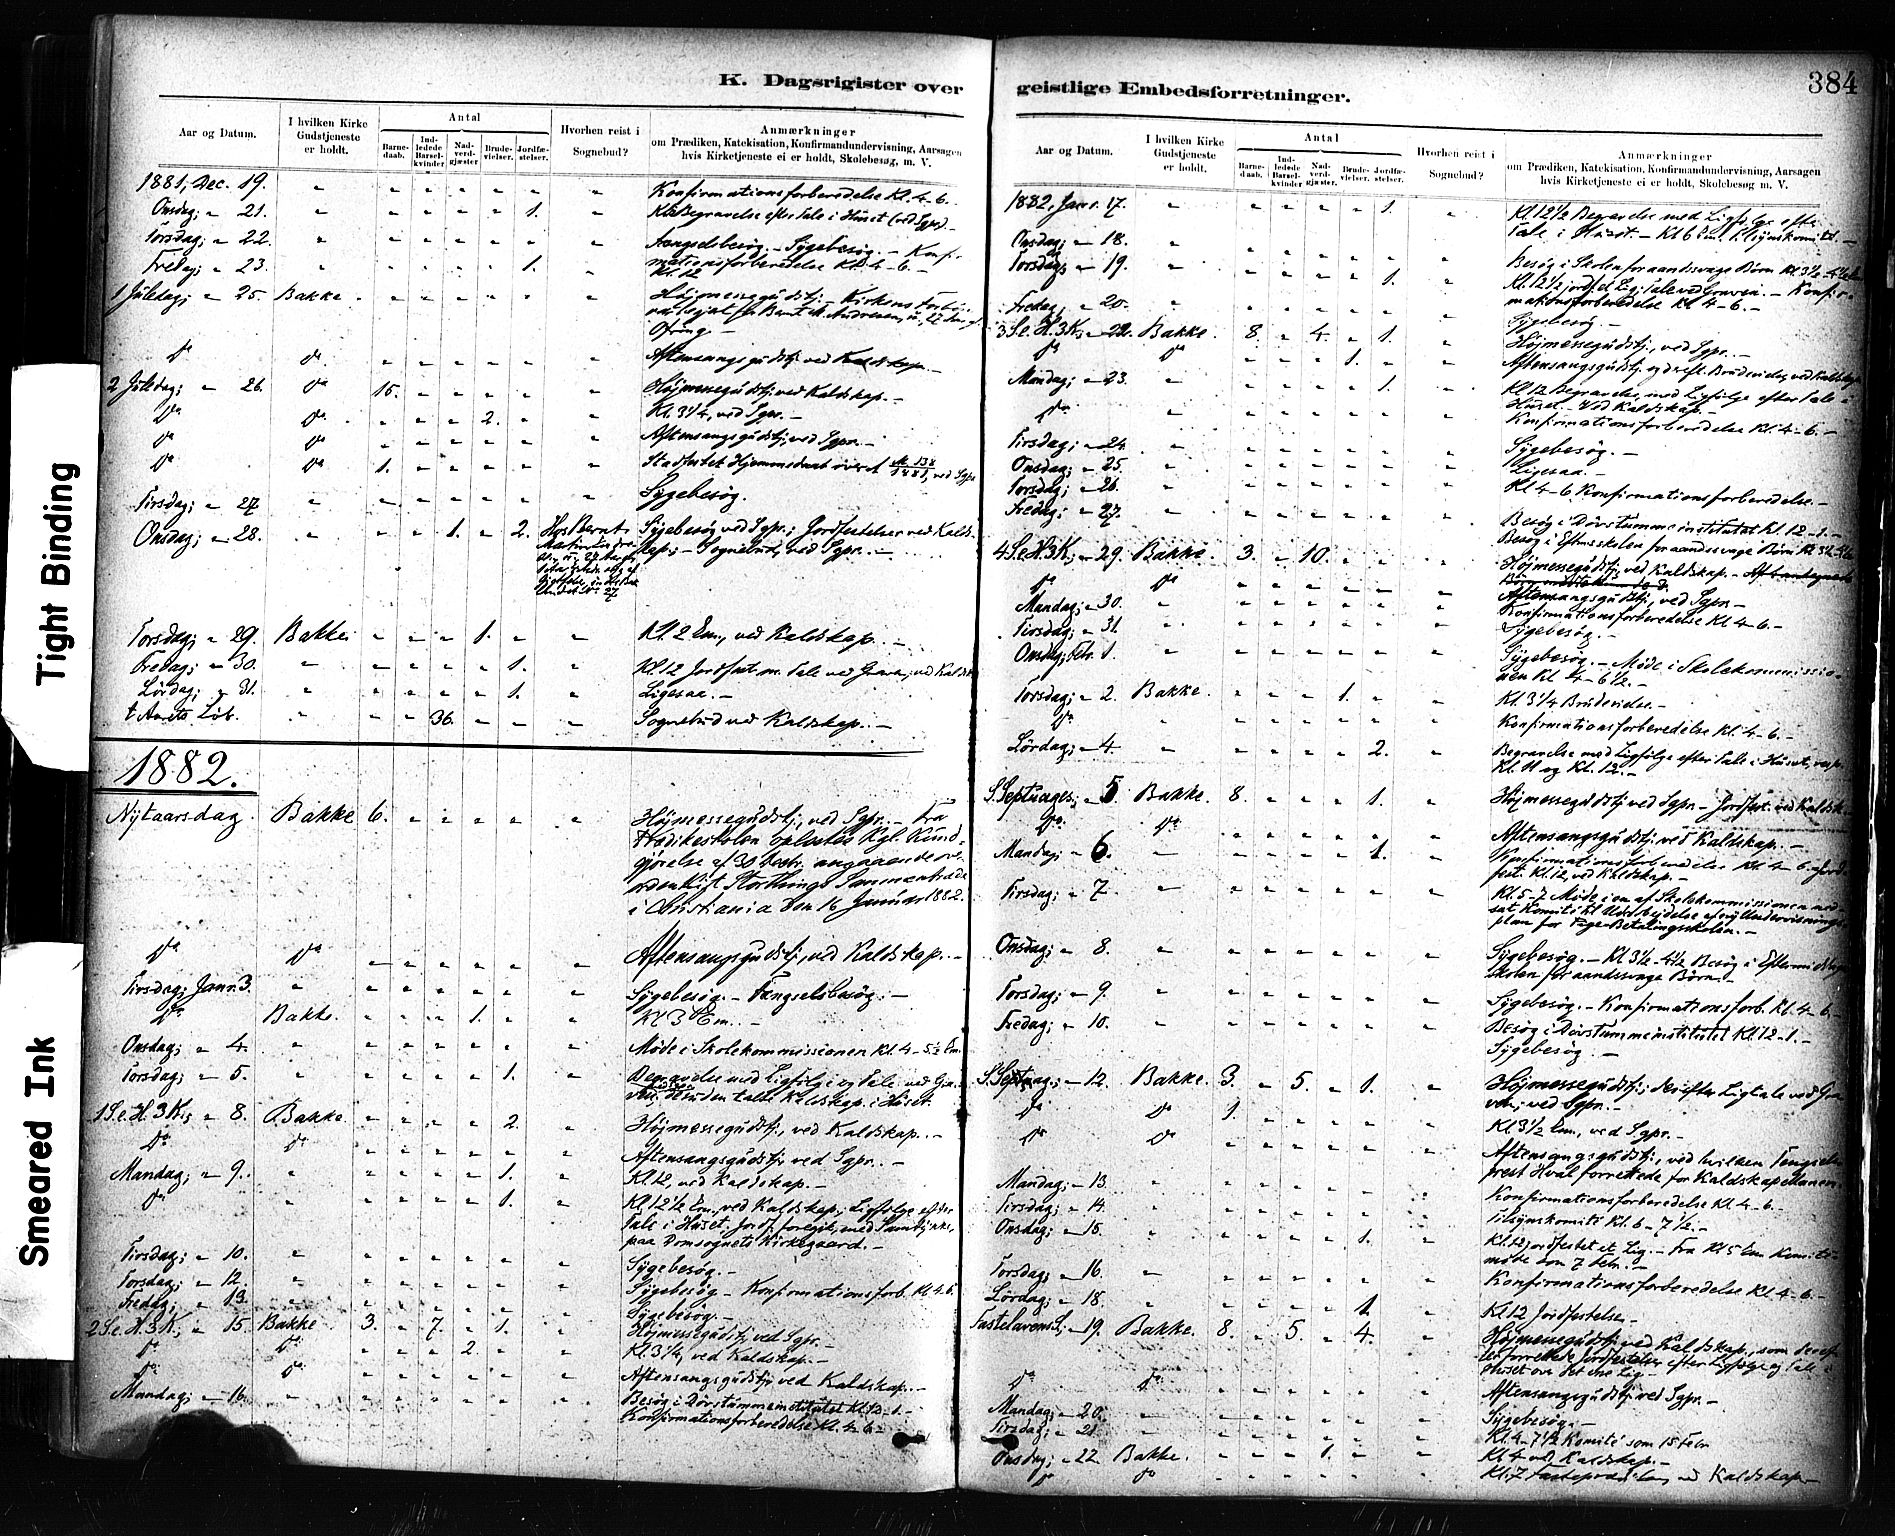 K. Dagsrigister over
Aar og Datum.
I hvilken Kirke Gudstjeneste er holdt.
Antal
Barne-daab.
Ind-ledede Barsel-kvinder
Nad-verd-gjæster
Brude-vielser.
Jordfæ-stelser.
Hvorhen reist i Sognebud?
Anmærkninger
om Prædiken, Katekisation, Konfirmandundervisning, Aarsagen
hvis Kirketjeneste ei er holdt, Skolebesøg, m. V.
1881, Dec. 19. Konfirmationsforberedelse Kl. 4-6.
Onsdag; 21. 1. Begravelse efter Tale i Huset (ved Sgpr.)
Torsdag; 22. Fængselsbesøg. - Sygebesøg. - Konfir-
mationsforberedelse Kl. 4-6. -
Fredag; 23. 1. Kl. 12
1 Juledag; 25. Bakke Højmessegudstj.
Do Do Aftensangsgudstj. ved Kaldskap. -
2 Juledag; 26. Do 15. Højmessegudstj. ved Kaldskap. -
Do Do 2. Kl. 3 1/4, ved Sgpr. -
Do Do Aftensangsgudstj. ved Sgpr. -
Do Do 1. Stadfæstet Hjemmedaab ved Sgpr
Tirsdag; 27 Sygebesøg.
Onsdag; 28. 1. 2. Hos Bernt Sygebesøg ved Sgpr.; Jordfæstelser ved Kalds-
kap; - Sognebud, ved Sgpr. -
Torsdag; 29. Bakke 1. Kl. 2 Em., ved Kaldskap. -
Fredag; 30. 1. Kl. 12 Jordfæst. m. Tale ved Graven, ved Kaldsk
Lördag; 31. 1. Ligesaa. -
I Aarets Löb. 36. Sognebud ved Kaldskap. -
1882.
Nytaarsdag. Bakke 6. Højmessegudstj., ved Sgpr. - Fra
Prædikestolen oplæstes Kgl. Kund-
gjörelse af 30 Decbr. angaaende ove-
rordentligt Storthings Sammentræde
i Christiania den 16 Januar 1882.
Do Do Aftensangsgudstj., ved Kaldskap. -
Tirsdag; Janr. 3. Sygebesøg. - Fængselsbesøg. -
Do Bakke. 1. Kl. 3 Em. -
Onsdag; 4. Møde i Skolekommissionen Kl. 4-5 1/2 Em.
Torsdag; 5. 1. Begravelse med Ligfölge og Tale ved Gra-
ven; desuden talte Kaldskap. i Huset.
1 S. e. H. 3 K.; 8. Bakke 2. Højmessegudstj., ved Kaldskap. -
Do Do Aftensangsgudstj. ved Sgpr. -
Mandag; 9. 1. Kl. 12, ved Kaldskap. -
Do 1. Kl. 12 1/2 Em., ved Kaldskap., Ligfølge efter
Tale i Huset. Jordf. foregik, med Samtykke,
paa Domsognets Kirkegaard. -
Tirsdag; 10. Sygebesøg. -
Torsdag; 12. Sygebesøg - Konfirmationsforb. Kl. 4-6.
Fredag; 13. Sygebesøg. -
2 S. e. H. 3 K.; 15. Bakke 3. 7. 1. Højmessegudstj. ved Sgpr. -
Do Do 2. Kl. 3 1/4, ved Kaldskap. -
Do Do Aftensangsgudstj. ved Kaldskap. -
Mandag; 16. Besøg i Døvstummeinstitutet Kl. 12-1. -
Konfirmationsforberedelse Kl. 4-6. -
384
geistlige Embedsforretninger.
Aar og Datum.
I hvilken Kirke Gudstjeneste er holdt.
Antal
Barne-daab.
Ind-ledede Barsel-kvinder
Nad-verd-gjæster.
Brude-vielser.
Jordfæ-stelser.
Hvorhen reist i Sognebud?
Anmærkninger
om Prædiken, Katekisation, Konfirmandundervisning, Aarsagen
hvis Kirketjeneste ei er holdt, Skolebesøg m. V.
1882, Janr. 17. 1. Kl. 12 1/2 Begravelse med Ligfölge efter
Tale i Huset. - Kl. 6 Em. Tilsynskomité. -
Onsdag; 18. Besøg i Skolen for aandssvage Børn Kl. 3 1/2 - 4 1/2
Torsdag; 19. 1. Kl. 3 1/2 jordf. et Lig; Tale ved Graven. - Konfir-
mationsforberedelse Kl. 4-6. -
Fredag; 20. Sygebesøg. -
3 S. e. H. 3 K.; 22. Bakke 8. 4. 1. Højmessegudstj., ved Sgpr. -
Do Do 1. Aftensangsgudstj. og dereft. Brudevielse, ved Kaldskap
Mandag; 23. 1. Kl. 12 Begravelse, med Ligfølge efter Tale i
Huset. - Ved Kaldskap. -
Do Konfirmationsforberedelse Kl. 4-6. -
Tirsdag; 24. Sygebesøg. -
Onsdag; 25. Ligesaa. -
Torsdag; 26. Kl. 4-6. Konfirmationsforberedelse. -
Fredag; 27. Besøg i Døvstummeinstitutet Kl. 12-1. -
Besøg i Eftmskolen for aandssvage Børn Kl. 3 1/2 - 4 1/2
4 S. e. H. 3 K.; 29. Bakke. 3. 10. Højmessegudstj. ved Kaldskap. -
Do Do Aftensangsgudstj., ved Sgpr. -
Mandag; 30. Konfirmationsforberedelse Kl. 4-6. -
Tirsdag; 31. Sygebesøg. -
Onsdag; Febr. 1. Sygebesøg. - Møde i Skolekommissio-
nen Kl. 4-6 1/2. -
Torsdag; 2. Bakke. 1. Kl. 3 1/4 Brudevielse. -
Do Konfirmationsforberedelse Kl. 4-6. -
Lördag; 4. 2. Begravelse med Ligfølge efter Tale i Huset, resp.
Kl. 11 og Kl. 12. -
S. Septuages; 5 Bakke. 8. 1. Højmessegudstj. ved Sgpr. - Jordfæst. ved Kaldsk.
Do Do Aftensangsgudstj. ved Kaldskap. -
Mandag; 6. 1. Konfirmationsforberedelse Kl. 4-6. og Jord-
fæst. Kl. 12, ved Kaldskap. -
Tirsdag; 7 Kl. 5-7 Møde i en af Skolekommissionen ned-
sat Komité til Udarbejdelse af ny Undervisnings-
plan for Betalingsskolen. -
Onsdag; 8. Sygebesøg. - Kl. 3 1/2 - 4 1/2 Besøg i Eftermiddags
skolen for aandssvage Børn. -
Torsdag; 9. Sygebesøg. - Konfirmationsforb. Kl. 4-6. -
Fredag; 10. Besøg i Døvstummeinstitutet Kl. 12-1. -
Sygebesøg. -
12. Bakke. 3. 5. 1. Højmessegudstj.; derefter Ligtale ved Gra-
ven; ved Sgpr. -
Do Do 1. Kl. 3 1/2 Em., ved Sgpr. -
Do Do Aftensangsgudstj., ved hvilken Fængsels-
præst Hval forrettede for Kaldskapellanen. -
Mandag; 13 Konfirmationsforberedelse Kl. 4-6. -
Tirsdag; 14. Tilsynskomité Kl. 6 - 7 1/2. -
Onsdag; 15. 1. Kl. 12 jordfæstet et Lig. - Fra Kl. 5 Em Komité-
møde som 7 Febr. -
Torsdag; 16. Konfirmationsforberedelse Kl. 4-6. -
Lördag; 18. 1. Kl. 12 Jordfæstelse. -
Fastelavens S.; 19. Bakke. 8. 5. 4. Højmessegudstj. ved Kaldskap., som deref-
ter forrettede Jordfæstelser efter Ligfølge og Tale i
Huset over det ene Lig. -
Do Do Aftensangsgudstj. ved Sgpr. -
Mandag; 20. Sygebesøg. -
Tirsdag; 21. Kl. 4 - 7 1/2 Komité som 15 Febr
Onsdag; 22 Bakke. 1. Kl. 4 ved Kaldskap. -
Do Do Kl. 7 Fasteprædiken, ved Kaldskap. -
Tight Binding
Smeared Ink